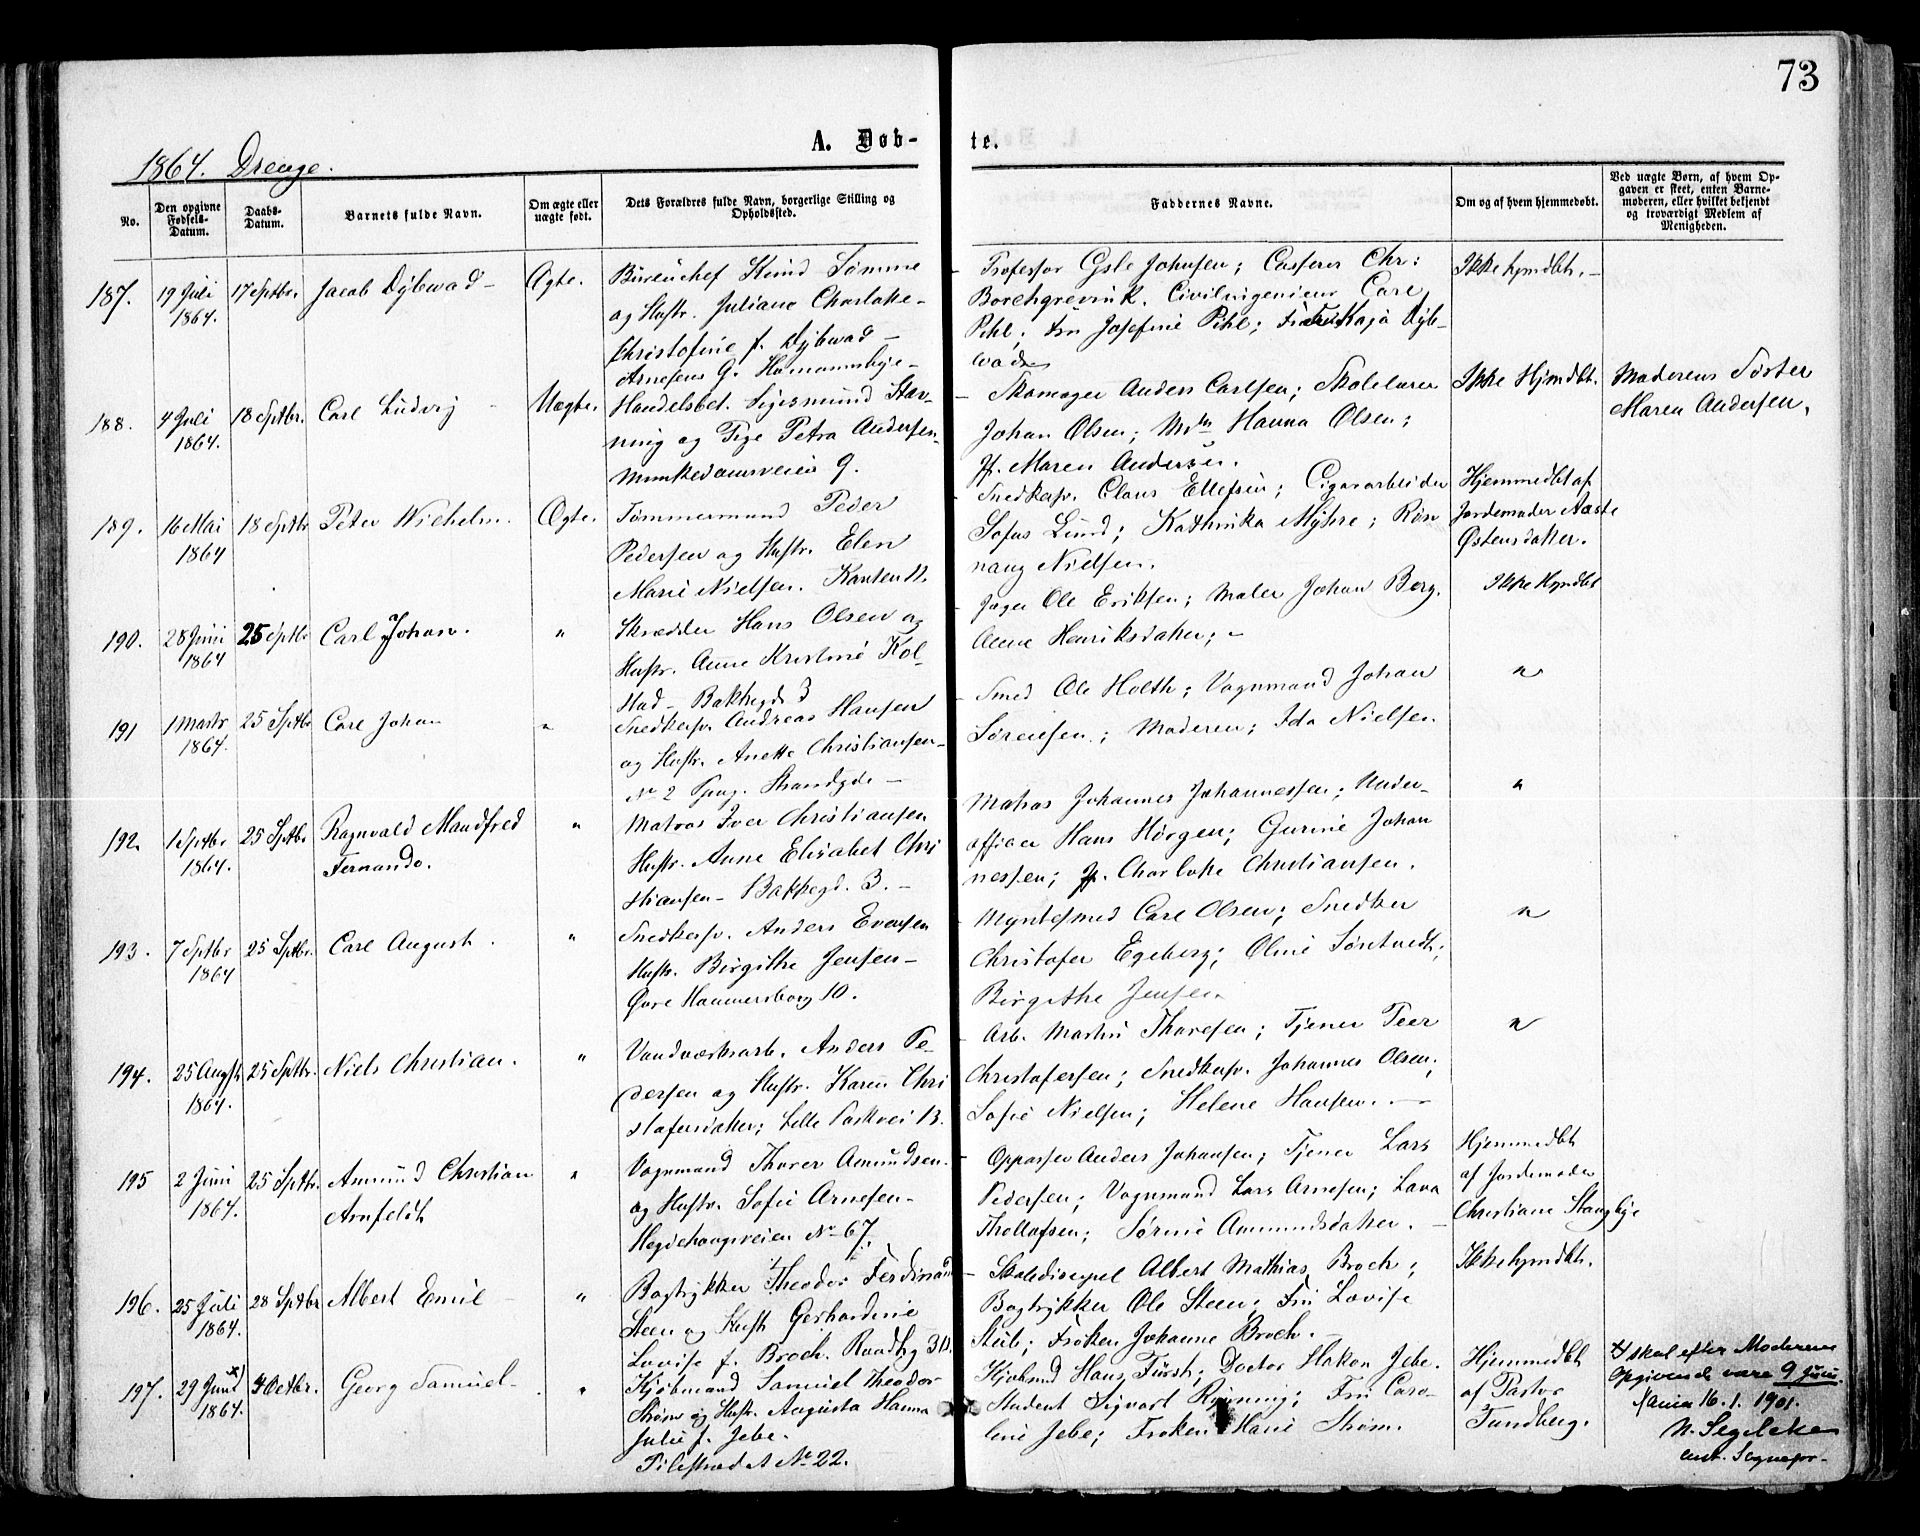 73
A. Døb-
te.
1864. Drenge.
No.
Den opgivne Fødsels-Datum.
Daabs-Datum.
Barnets fulde Navn.
Om ægte eller uægte født.
Dets Forældres fulde Navn, borgerlige Stilling og Opholdssted.
Faddernes Navne.
Om og af hvem hjemmedøbt.
Ved uægte Børn, af hvem Op-
gaven er skeet, enten Barne-
moderen, eller hvilket bekjendt
og troværdigt Medlem af
Menigheden.
187.
19 Juli
1864.
17 Sptbr.
Jacob Dybwad
Ægte.
Bureuchef Knud Sømme
og Hustr. Juliane Charlotte
Christofine f. Dybwad
Arnesens G. Homannsbye
Professor Gisle Johnsen; Casserer Chr:
Borchgrevink. Civilingenieur Carl
Pihl; Fru Josefine Pihl; Kaja Dyb-
wad
Ikke hjmdbt.
188.
4 Juli
1864.
18 Sptbr.
Carl Ludvig
Uægte.
Handelsbet. Sigismund Hav-
ning og Pige Petra Andersen
Munkedamsveien 9.
Skomager Anders Carlsen; Skolelærer
Johan Olsen; Mdm Hanna Olsen;
Jf. Maren Andersen.
Ikke Hjmdbt.
Moderens Søster
Maren Andersen.
189.
16 Mai
1864
18 Sptbr
Peter Wilhelm.
Ægte.
Tømmermand Peder
Pedersen og Hustr. Elen
Marie Nielsen.
Snedkersv. Claus Ellefsen; Cigararbeider
Sofus Lund; Kathinka Myhre; Røn
naug Nielsen.
Hjemmedbt af
Jordemoder Aaste
Østensdatter.
190.
28 Juni
1864
25 Sptbr
Carl Johan.
"
Skrædder Hans Olsen og
Hustr. Anne Kristine Kol-
stad - Bakkegd 3
Jæger Ole Eriksen; Maler Johan Berg.
Anne Henriksdatter;
Ikke Hjmdbt
191
1 Marts
1864.
25 Sptbr
Carl Johan
"
Snedkersv. Andreas Hansen
og Hustr. Anette Christiansen
No 2 Strandgde
Smed Ole Holth; Vognmand Johan
Sørensen; Moderen; Ida Nielsen.
"
192.
1 Sptbr
1864.
25 Sptbr
Ragnvald Mandfred
Fernando.
"
Matros Iver Christiansen
Hustr. Anne Elisabet Chri
stiansen - Bakkegd. 3.
Matros Johannes Johannessen; Under-
officer Hans Hørgen; Gurine Johan
nessen; Jf. Charlotte Christiansen.
"
193.
7 Sptbr
1864
25 Sptbr.
Carl August.
"
Snedkersv. Anders Evensen
Hustr. Birgithe Jensen
Øvre Hammersborg 10.
Myntesmed Carl Olsen; Snedker
Christofer Egeberg; Oline Søntvedt;
Birgithe Jensen
"
194.
25 Augst
1864.
25 Sptbr.
Niels Christian.
"
Vandværksarb. Anders Pe-
dersen og Hustr. Karen Chri
stofersdatter; Lille Parkvei 13.
Arb. Martin Thoresen; Tjener Peer
Christofersen; Snedkersv. Johannes Olsen;
Sofie Nielsen; Helene Hansen.
"
195
2 Juni
1864.
25 Sptbr.
Amund Christian
Arnfeldt
"
Vognmand Thorer Amundsen
og Hustr. Sofie Arnesen
Hegdehaugsveien No 67.
Oppasser Anders Johansen; Tjener Lars
Pedersen; Vognmand Lars Arnesen; Lava
Thollofsen; Sørine Ammundsdatter.
Hjemmedbt
af Jordemoder
Christiane Stangbye
196.
25 Juli
1864.
28 Sptbr
Albert Emil
"
Bogtrykker Theodor Ferdinand
Steen og Hustr Gerhardine
Lovise f. Broch. Raadhg 30.
Skoledisciepel Albert Mathias Broch;
Bogtrykker Ole Steen; Fru Lovise
Stub; Frøken Johanne Broch.
Ikke hjmdbt.
197.
29 Juni x)
1864.
4 Octbr.
Georg Samuel
"
Kjøbmand Samuel Theodor
Strøm og Hustr. Augusta Hanna
Julie f. Jebe.
Pilestrædet No 22.
Kjøbmd Hans Fürst; Doctor Hakon Jebe.
Student Sigvart Rynning; Fru Caro-
line Jebe; Frøken Marie Strøm.
Hjemmedbt
af Pastor
Tandberg.
x) skal efter Moderens
Opgivende være 9 Juni.
16.1.1901.
N. Segelcke
const. Sognepr.